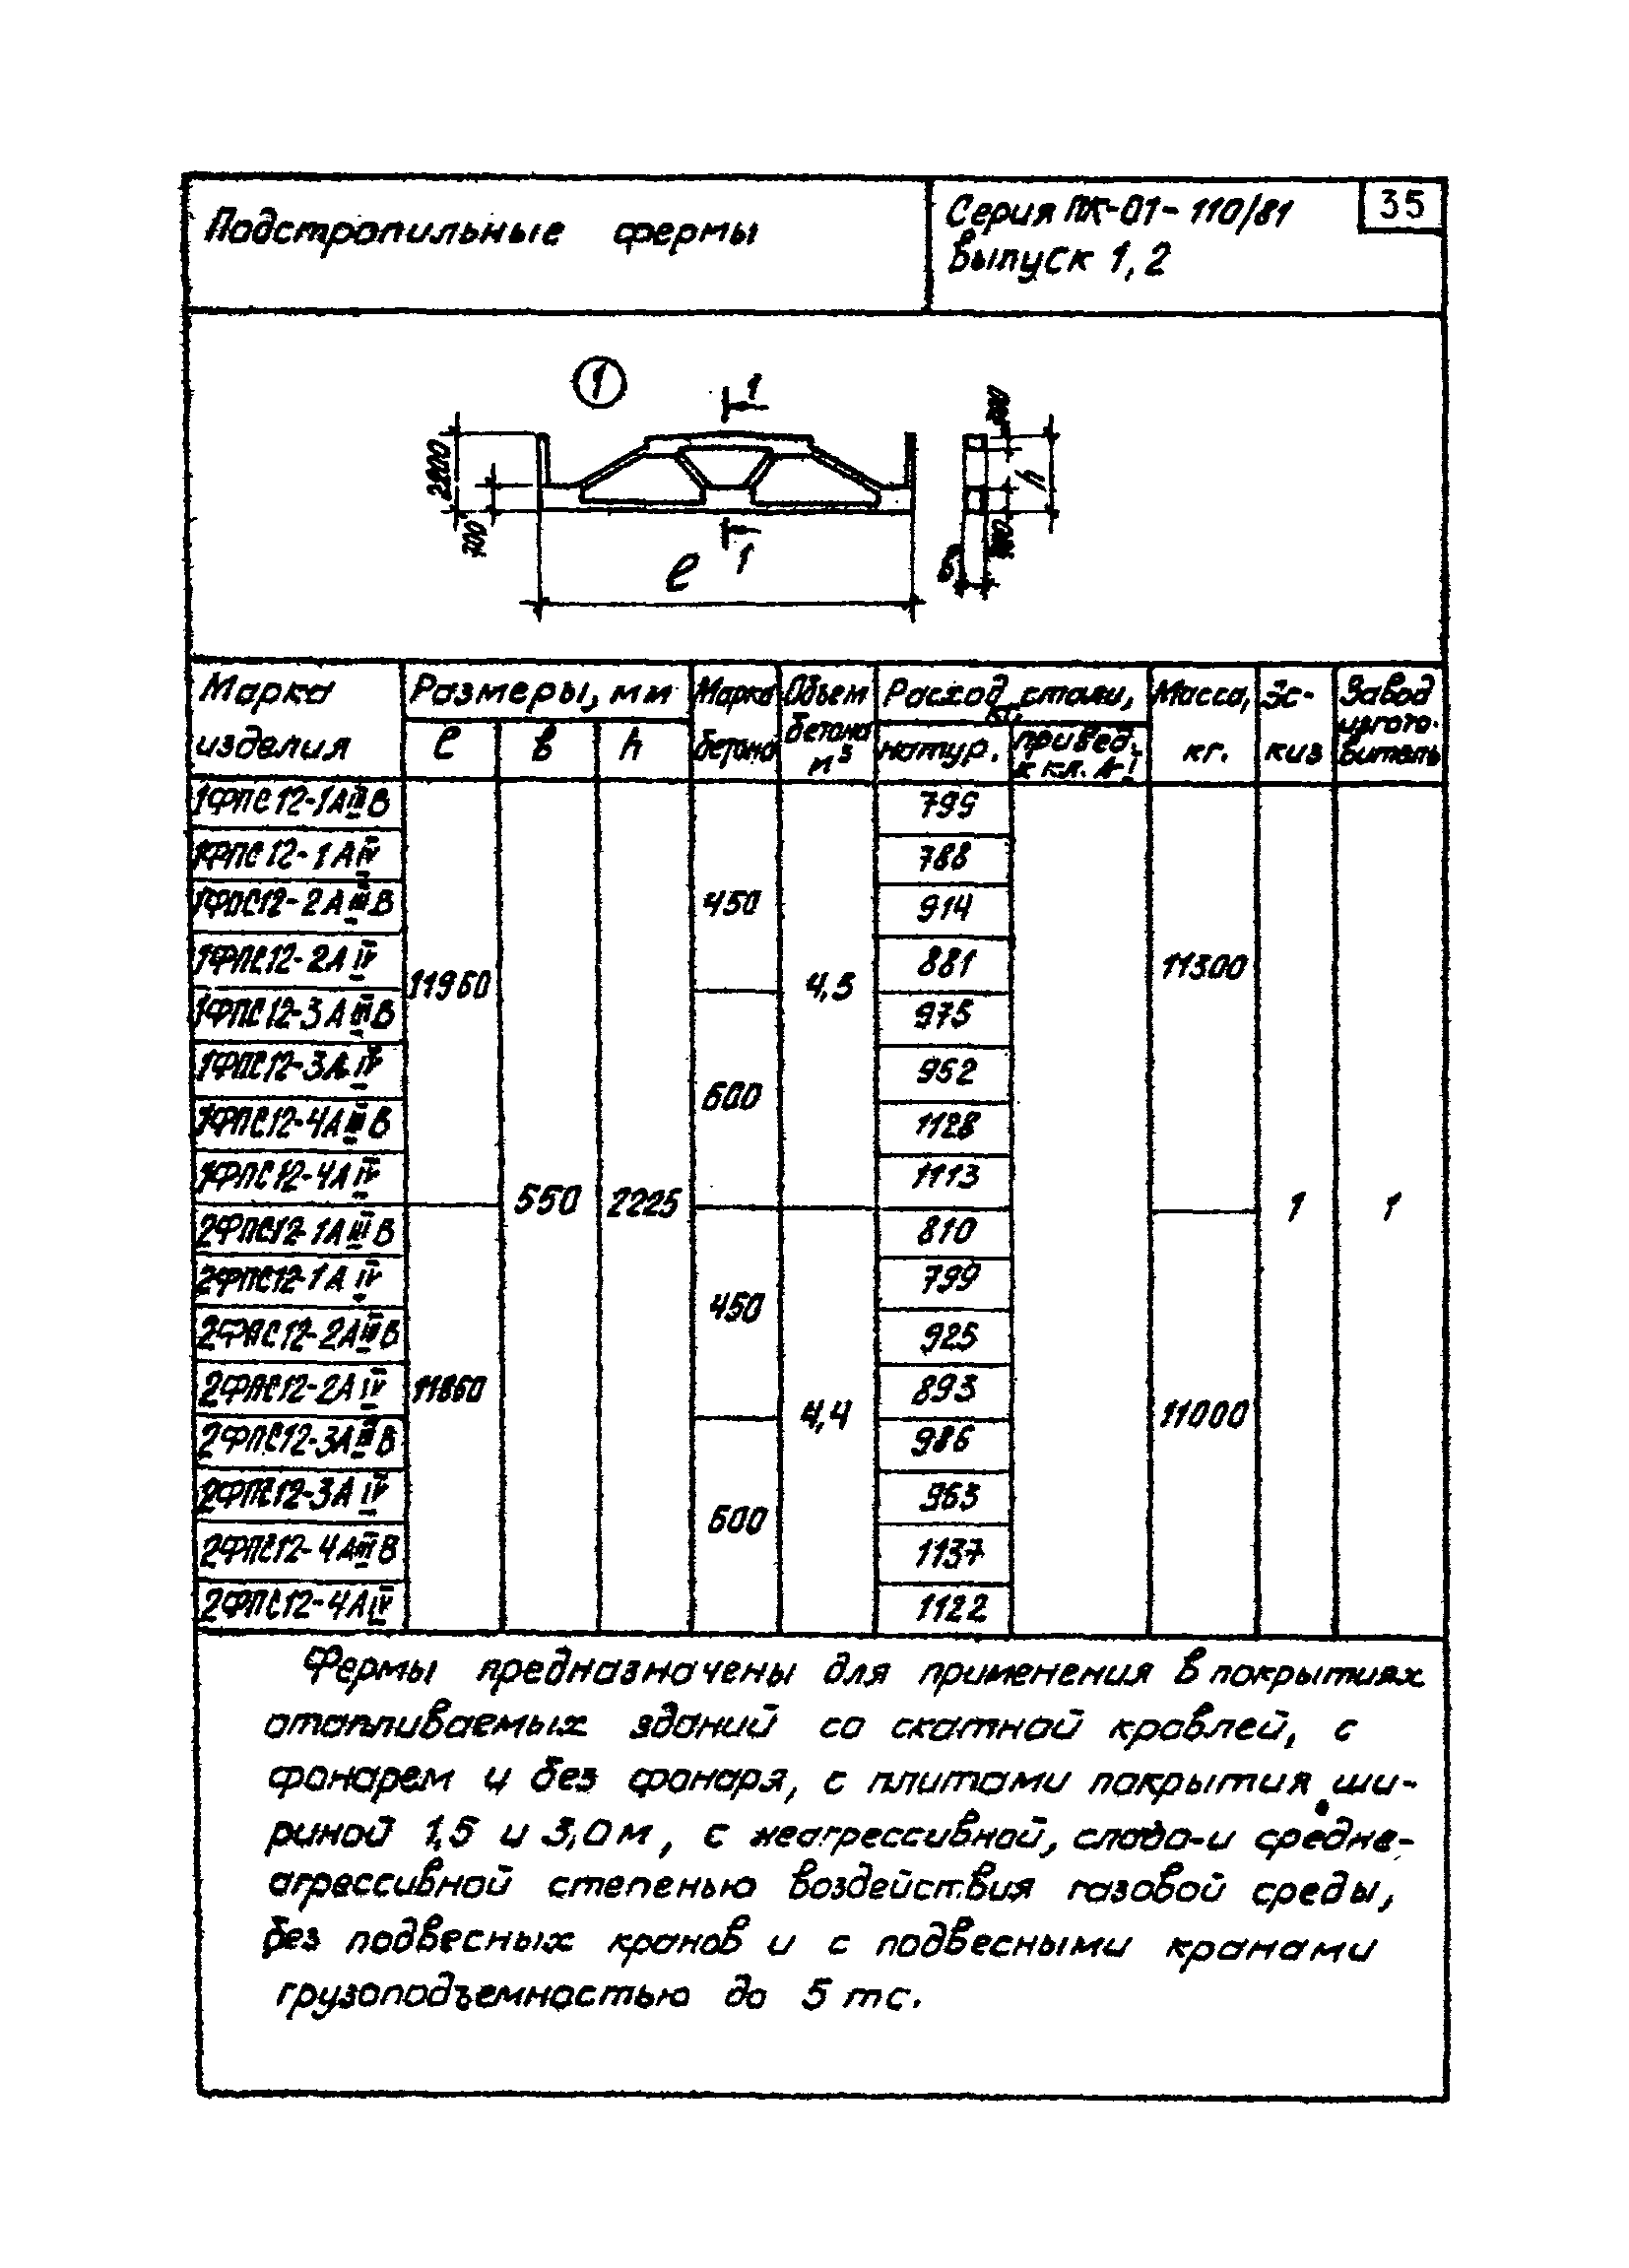 Подстропильные фермы
Серия ПК-01-110/81
35
Выпуск 1, 2
1
1
2200
700
h
ℓ
1
в
Марка изделия
Размеры, мм
Марка бетона
Объем бетона м³
Расход стали, кг.
Масса, кг.
Эс-киз
Завод изгото-витель
ℓ
в
h
натур.
привед. к кл. А-I
1ФПС12-1АIIIВ 799
1ФПС12-1АIV 788
1ФПС12-2АIIIВ 450 914
1ФПС12-2АIV 881 11300
11960 4,5
1ФПС12-3АIIIВ 975
1ФПС12-3АIV 952
600
1ФПС12-4АIIIВ 1128
1ФПС12-4АIV 1113
550 2225 1 1
2ФПС12-1АIIIВ 810
2ФПС12-1АIV 799
450
2ФПС12-2АIIIВ 925
2ФПС12-2АIV 11860 893
4,4 11000
2ФПС12-3АIIIВ 986
2ФПС12-3АIV 963
600
2ФПС12-4АIIIВ 1137
2ФПС12-4АIV 1122
Фермы предназначены для применения в покрытиях
отапливаемых зданий со скатной кровлей, с
фонарем и без фонаря, с плитами покрытия ши-
риной 1,5 и 3,0 м, с неагрессивной, слабо-и средне-
агрессивной степенью воздействия газовой среды,
без подвесных кранов и с подвесными кранами
грузоподъемностью до 5 тс.